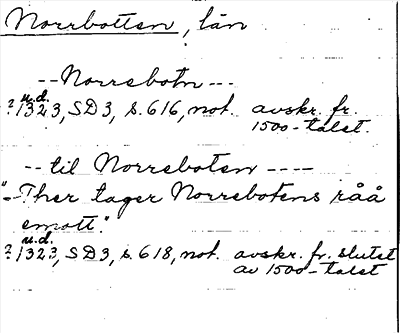 Norrbotten, län
-- Norrebotn ---
u.d.
? 1323, SD3, s. 616, not. avskr. fr.
1500-talet.
-- til Norreboten ----
"- Ther tager Norrebotens råå
emott."
u.d.
? 1323, SD3, s. 618, not. avskr. fr. slutet
av 1500-talet